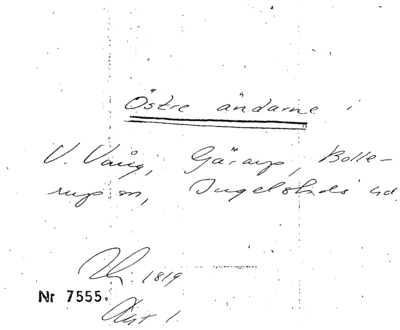 Östre ändarne i
V. Vång, Gärarp, Bolle-
rup m, Ingelstads hd.
1819
Nr 7555.
Akt 1.